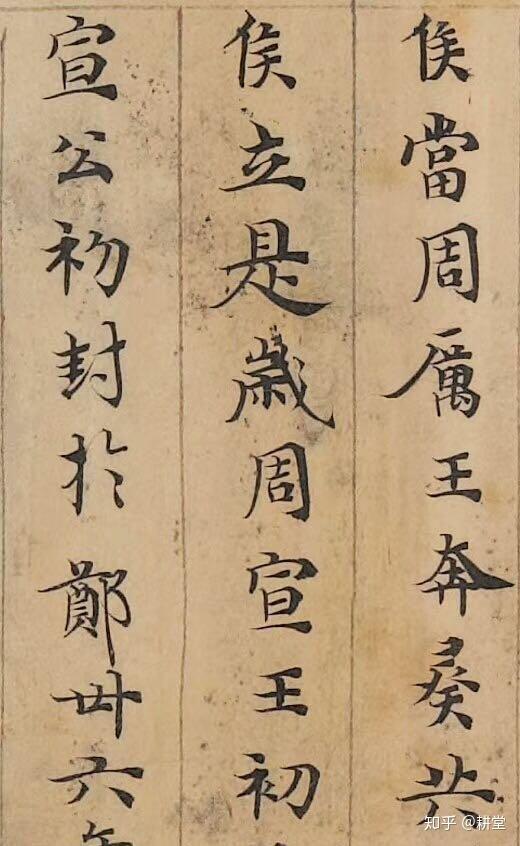 侯當周厲王奔彘共
侯立是歲周宣王初
宣公初封於鄭卅六年
知乎 @耕堂